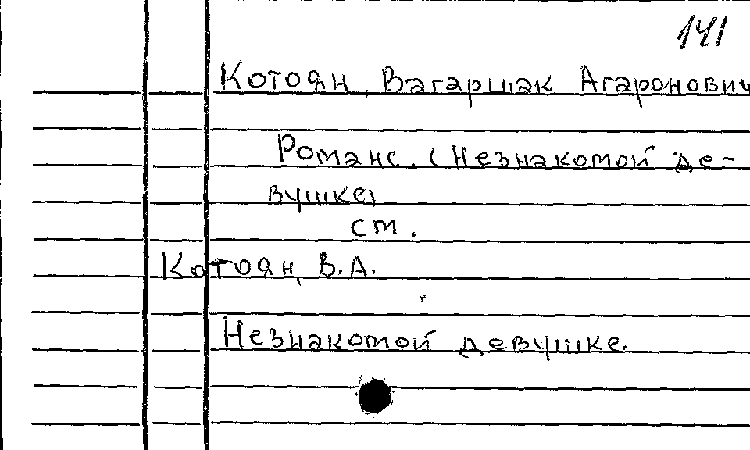 141
Котоян, Вагаршак Агаронович
Романс. (Незнакомой де-
вушке)
см.
Котоян, В.А.
Незнакомой девушке.